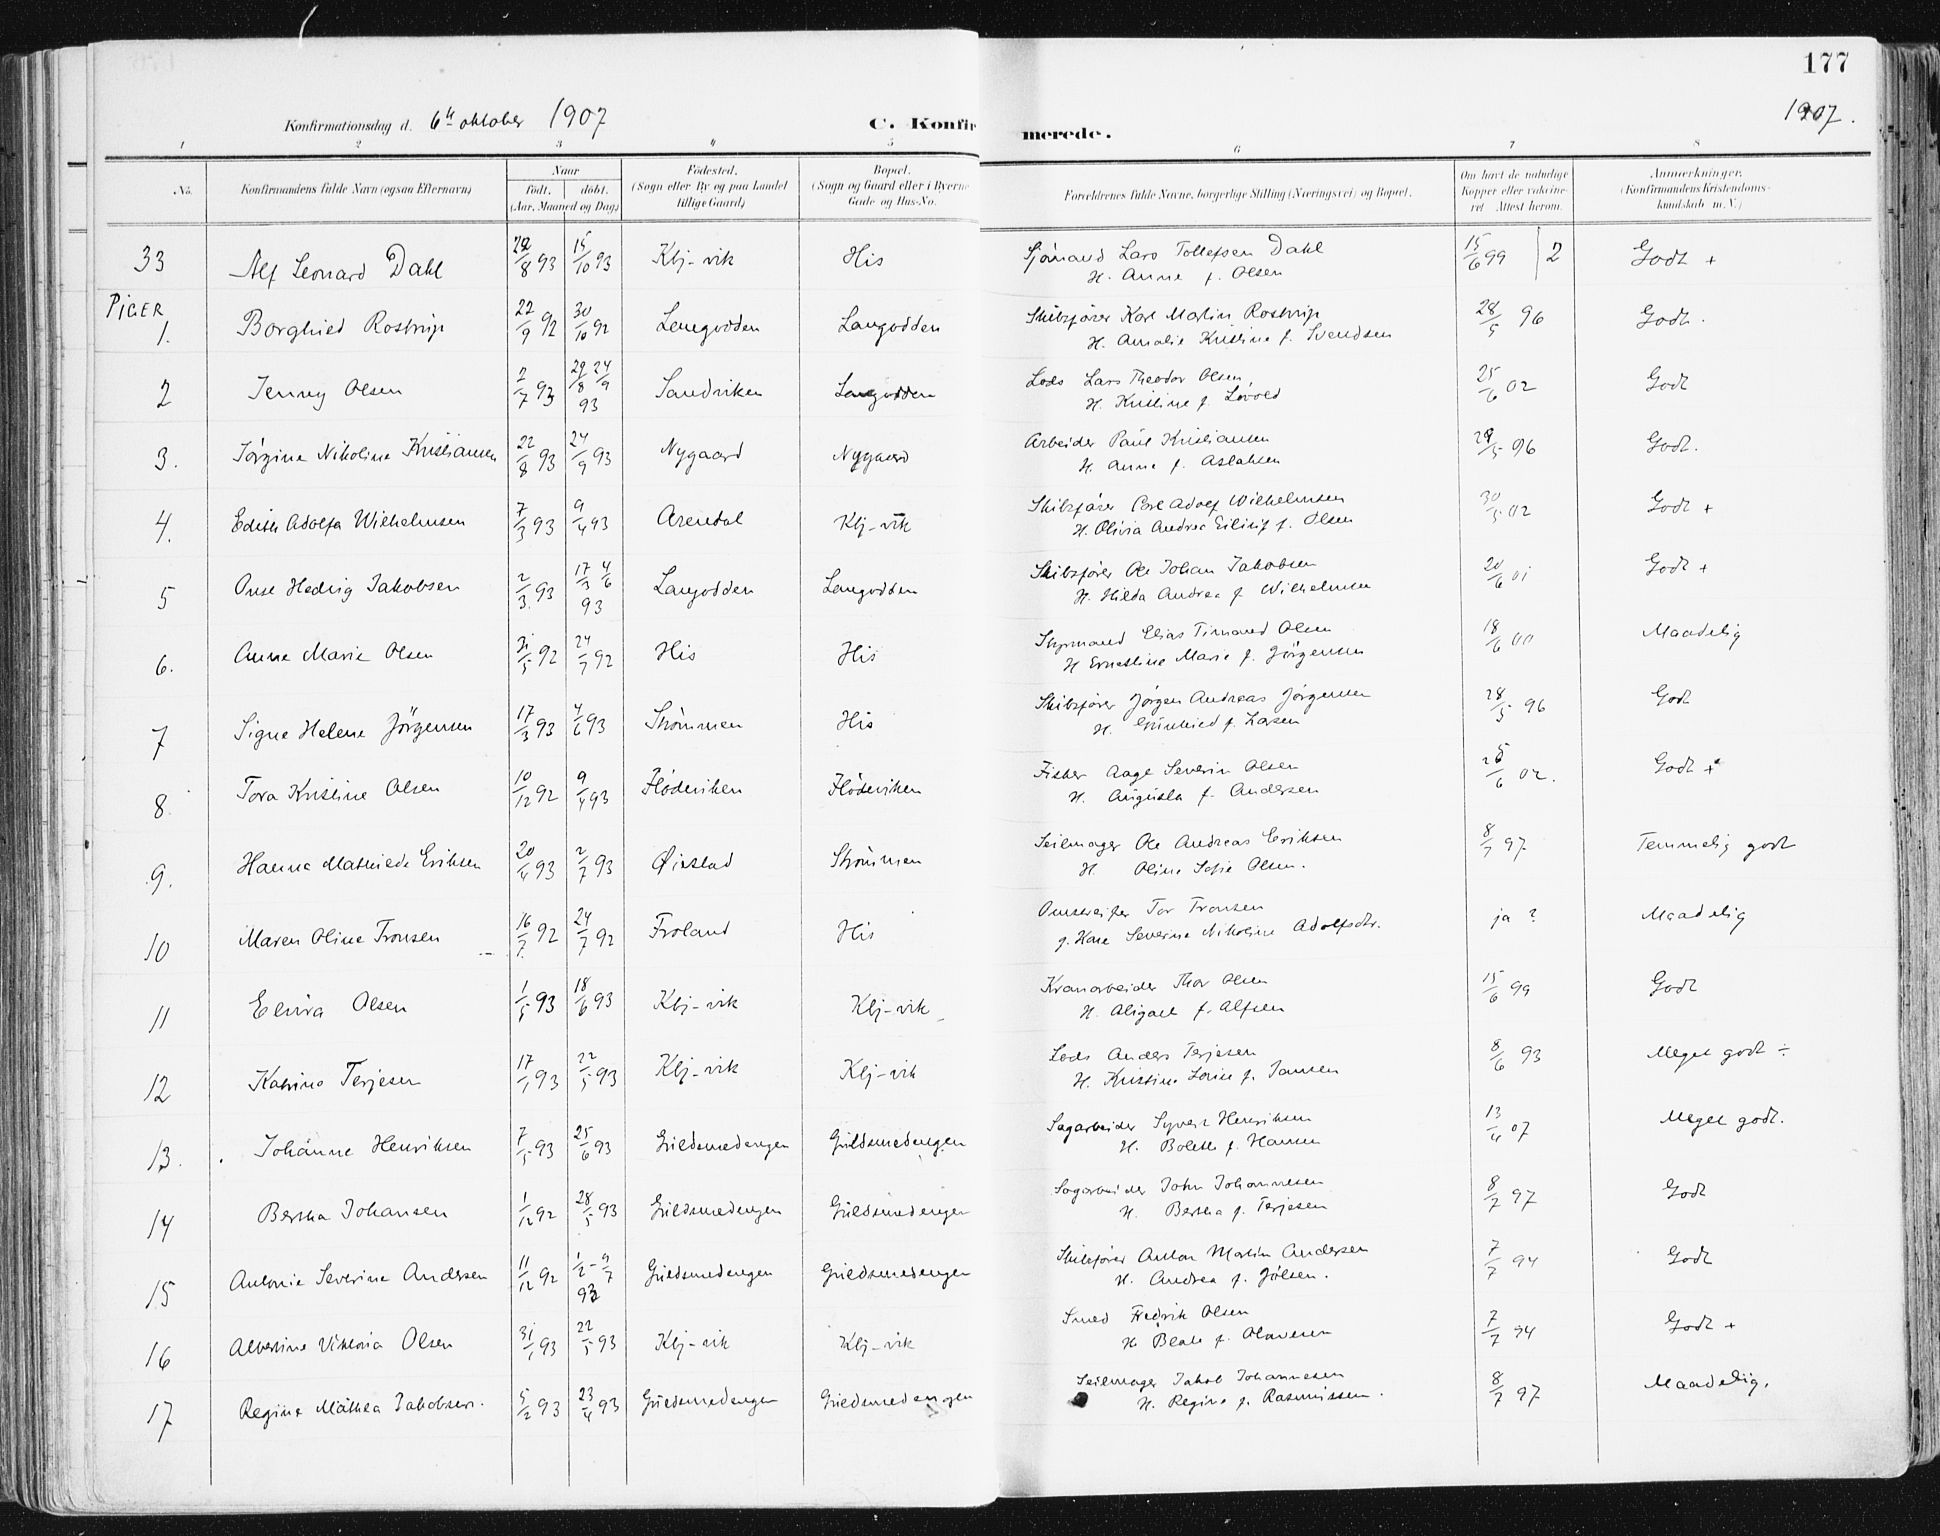 177
Konfirmationsdag d. 6te oktober 1907
C. Konfirmerede.
1907.
1 2 3 4 5 6 7 8
No. Konfirmandens fulde Navn (ogsaa Efternavn) Naar født. døbt. (Aar, Maaned og Dag) Fødested. (Sogn eller By og paa Landet tillige Gaard) Bopæl. (Sogn og Gaard eller i Byerne Gade og Hus-No. Forældrenes fulde Navne, borgerlige Stilling (Næringsvei) og Bopæl. Om havt de naturlige Kopper eller vaccineret. Attest herom. Anmerkninger. (Konfirmandens Kristendomskundskab m. V.)
33 Alf Leonard Dahl 22/8 93 15/10 93 Kbj-vik His Sjömand Lars Tollefsen Dahl H. Anne f. Olsen 15/6 99 2 Godt +
PIGER
1. Borghild Rostrup 22/9 92 30/10 92 Langodden Langodden Skibsfører Karl Martin Rostrup H. Amalie Kristine f. Svendsen 28/5 96 Godt.
2 Jenny Olsen 2/7 93 29/8 24/9 93 Sandviken Langodden Lods Lars Theodor Olsen H. Kristine f. Løvold 25/6 02 Godt
3. Jörgine Nikoline Kristiansen 22/8 93 24/9 93 Nygaard Nygaard Arbeider Paul Kristiansen H. Anne f. Aslaksen 28/5 96 Godt.
4. Edith Adolfa Wilhelmsen 7/3 93 9/4 93 Arendal Kbj-vik Skibsfører Carl Adolf Wilhelmsen H. Olivia Andrea f. Olsen 30/5 02 Godt +
5 Anse Hedvig Jakobsen 2/3 93 17/3 4/6 93 Langodden Langodden Skibsfører Ole Johan Jakobsen H. Hilda Andrea f. Wilhelmsen 20/6 01 Godt +
6. Anna Marie Olsen 31/5 92 24/7 92 His His Styrmand Elias Olsen H Ernestine Marie f. Jörgensen 18/6 00 Maadelig
7 Signe Helene Jörgensen 17/3 93 4/6 93 Strömmen His Skibsfører Jörgen Andreas Jörgensen H. f. Larsen 28/5 96 Godt
8. Tora Kristine Olsen 10/12 92 9/4 93 Flödeviken Flödeviken Fisker Aage Severin Olsen H. Augusta f. Andersen 25/6 02. Godt +
9. Hanna Mathilde Eriksen 20/4 93 2/7 93 Øiestad Strömmen Seilmager Ole Andreas Eriksen H. Oline Sofie Olsen. 8/7 97 Temmelig godt
10 Maren Oline Tronsen 16/7 92 24/7 92 Froland His Tor Tronsen g. Kone Severine Nikoline Adolfsdtr. ja ? Maadelig
11 Elvira Olsen 1/5 93 18/6 93 Kbj-vik Kbj-vik Kranarbeider Thor Olsen H. Abigael f. Alfsen 15/6 99 Godt
12 Katrine Terjesen 17/1 93 22/5 93 Kbj-vik Kbj-vik Lods Anders Terjesen H. Kristine Lovise f. Jansen 8/6 93 Meget godt ÷
13. Johanne Henriksen 7/5 93 25/6 93 Guldsmedengen Guldsmedengen Sagarbeider Syvert Henriksen H. Bolette f. Hansen 13/4 07 Meget godt.
14 Bertha Johansen 1/12 92 28/5 93 Guldsmedengen Guldsmedengen Sagarbeider John Johannesen H. Bertha f. Terjesen 8/7 97 Godt
15 Antonie Severine Andersen 11/12 92 1/2 - 9/7 93 Guldsmedengen Guldsmedengen Skibsfører Anton Martin Andersen H. Andrea f. Jölsen. 7/7 94 Godt
16 Albertine Viktoria Olsen 31/1 93 22/5 93 Kbj-vik Kbj-vik Smed Fredrik Olsen H Beate f. Olavesen 7/7 94 Godt +
17 Regine Mathea Jakobsen. 5/2 93 23/4 93 Guldsmedengen Guldsmedengen Seilmager Jakob Johannesen H. Regine f. Rasmussen. 8/7 97 Maadelig.